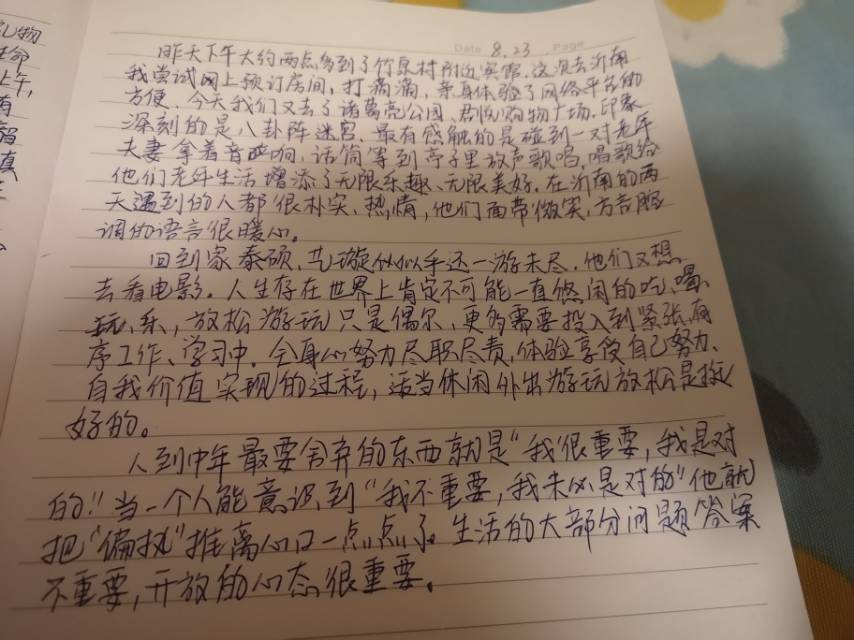 礼物
生命
上午,
有
真
Date 8.23 Page
昨天下午大约两点多到了竹泉村附近宾馆.这次去沂南
我尝试网上预订房间,打滴滴,亲身体验了网络平台的
方便.今天我们又去了诸葛亮公园、君悦购物广场.印象
深刻的是八卦阵迷宫.最有感触的是碰到一对老年
夫妻拿着音响,话筒等到亭子里放声歌唱,唱歌给
他们老年生活增添了无限乐趣、无限美好.在沂南的两
天遇到的人都很朴实、热情,他们面带微笑,方言腔
调的语言很暖心。
回到家泰硕、艺璇似乎还一游未尽.他们又想
去看电影.人生存在世界上肯定不可能一直悠闲的吃、喝、
玩、乐,放松游玩只是偶尔.更多需要投入到紧张有
序工作、学习中.全身心努力尽职尽责,体验享受自己努力、
自我价值实现的过程,适当休闲外出游玩放松是挺
好的。
人到中年最要舍弃的东西就是“我很重要,我是对
的!”当一个人能意识到“我不重要,我未必是对的”他就
把“偏执”推离心口一点点了.生活的大部分问题答案
不重要,开放的心态很重要.